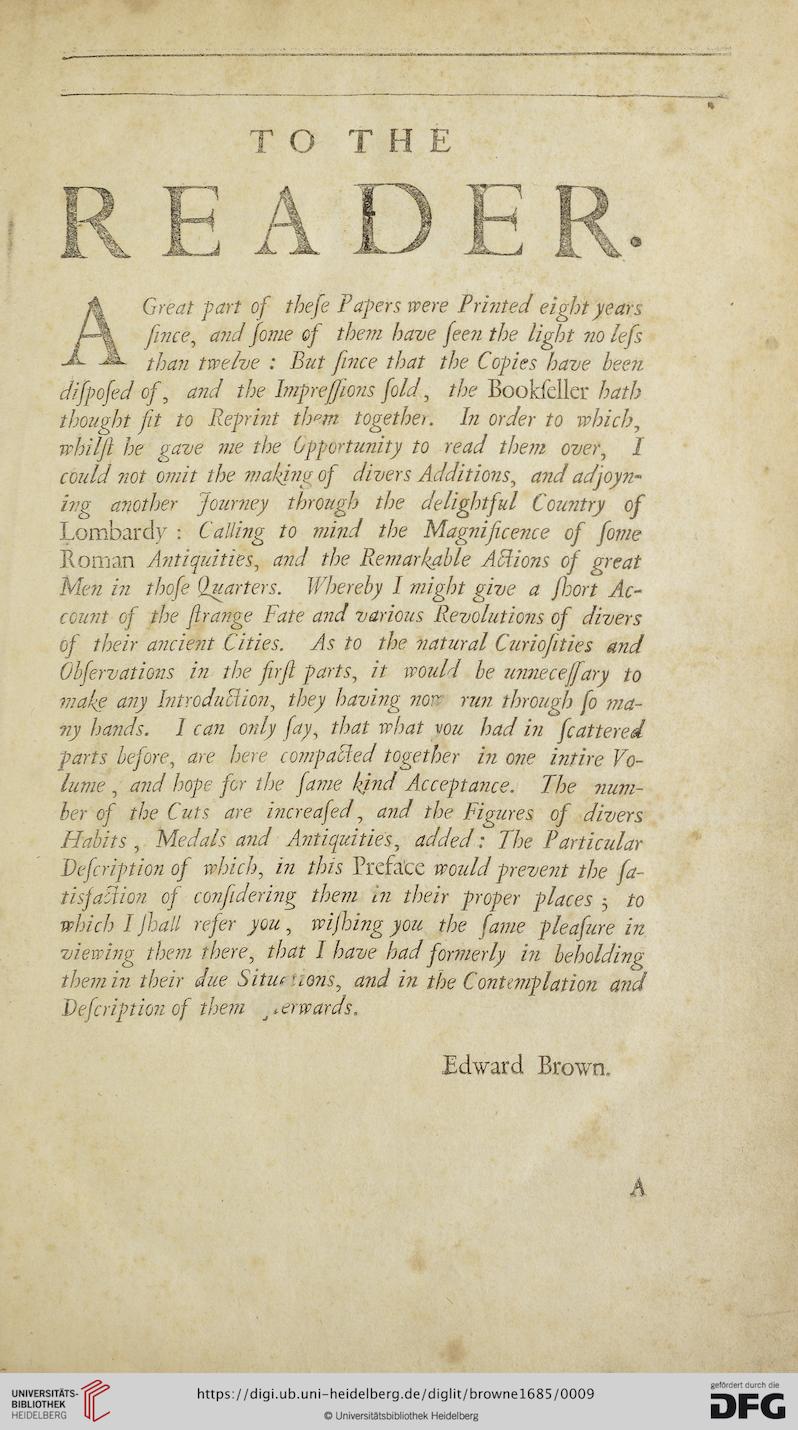 TO THE
READER.
A Great part of theſe Papers were Printed eight years
ſince, and ſome of them have ſeen the light no leſs
than twelve : But ſince that the Copies have been
diſpoſed of, and the Impreſſions ſold, the Bookſeller hath
thought fit to Reprint them together. In order to which,
whilſt he gave me the Opportunity to read them over, I
could not omit the making of divers Additions, and adjoyn-
ing another Journey through the delightful Country of
Lombardy : Calling to mind the Magnificence of ſome
Roman Antiquities, and the Remarkable Actions of great
Men in thoſe Quarters. Whereby I might give a ſhort Ac-
count of the ſtrange Fate and various Revolutions of divers
of their ancient Cities. As to the natural Curioſities and
Obſervations in the firſt parts, it would be unneceſſary to
make any Introduction, they having now run through ſo ma-
ny hands. I can only ſay, that what you had in ſcattered
parts before, are here compacted together in one intire Vo-
lume, and hope for the ſame kind Acceptance. The num-
ber of the Cuts are increaſed, and the Figures of divers
Habits, Medals and Antiquities, added : The Particular
Deſcription of which, in this Preface would prevent the ſa-
tisfaction of conſidering them in their proper places ; to
which I ſhall refer you, wiſhing you the ſame pleaſure in
viewing them there, that I have had formerly in beholding
them in their due Situations, and in the Contemplation and
Deſcription of them erwards.
Edward Brown.
A
UNIVERSITÄTS-
BIBLIOTHEK
HEIDELBERG
https://digi.ub.uni-heidelberg.de/diglit/browne1685/0009
© Universitätsbibliothek Heidelberg
gefördert durch die
DFG